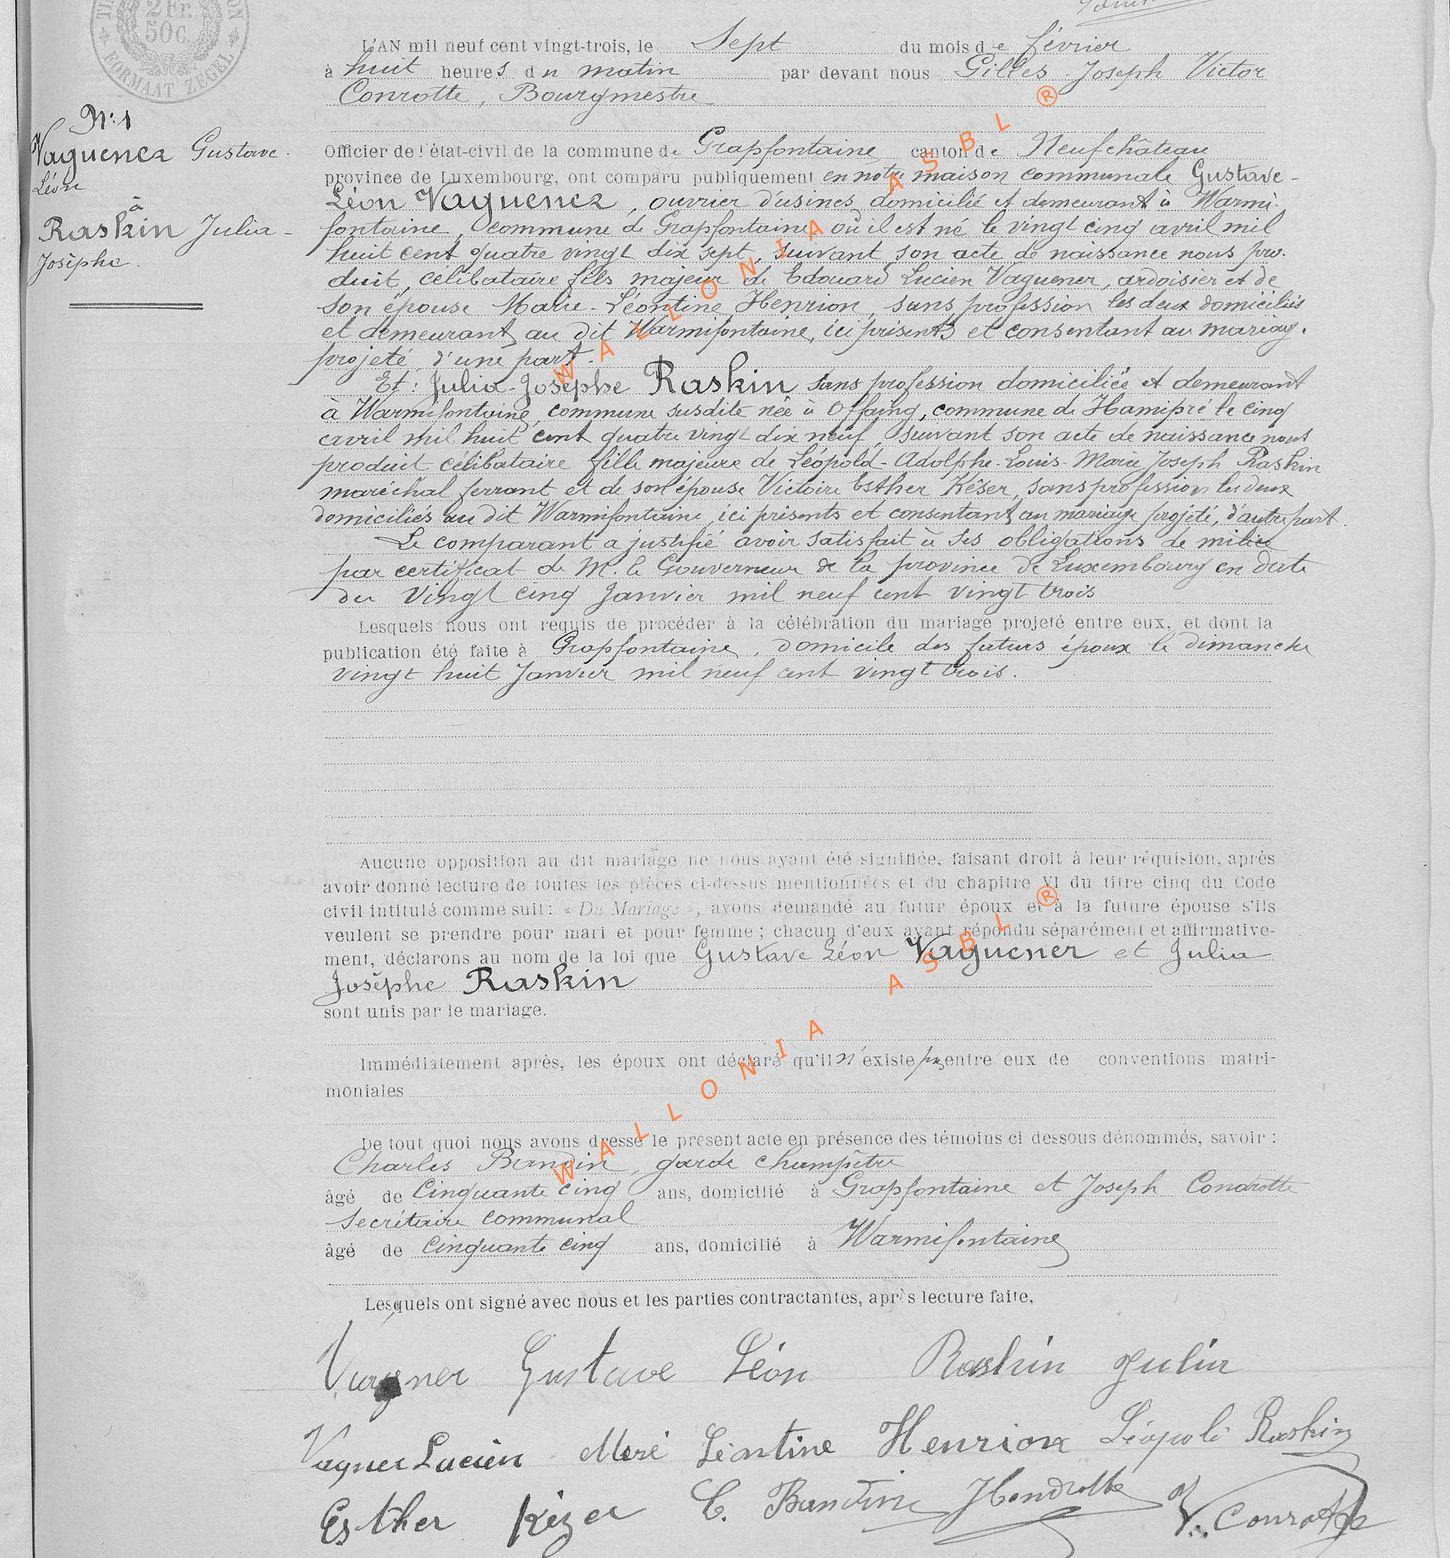 2 Fr.
50c.
FORMAAT ZEGEL
L'AN mil neuf cent vingt-trois, le Sept du mois de février
à huit heures du matin par devant nous Gilles Joseph Victor
Conrotte, Bourgmestre
N: 1
Vaguener Gustave-
Léon
à
Raskin Julia-
Josèphe.
Officier de l'état-civil de la commune de Grapfontaine canton de Neufchâteau
province de Luxembourg, ont comparu publiquement en notre maison communale Gustave-
Léon Vaguener, ouvrier d'usines domicilié et demeurant à Warmi-
fontaine, commune de Grapfontaine où il est né le vingt cinq avril mil
huit cent quatre vingt dix sept, suivant son acte de naissance nous pro-
duit, célibataire fils majeur de Edouard Lucien Vaguener, ardoisier et de
son épouse Marie-Léontine Henrion, sans profession les deux domiciliés
et demeurant au dit Warmifontaine, ici présents et consentant au mariag.
projeté, d'une part.
Et: Julia-Josèphe Raskin sans profession domiciliée et demeurant
à Warmifontaine, commune susdite née à Offaing, commune de Hamipré le cinq
avril mil huit cent quatre vingt dix neuf, suivant son acte de naissance nous
produit célibataire fille majeure de Léopold-Adolphe-Louis-Marie Joseph Raskin
maréchal ferrant et de son épouse Victoire Esther Késer, sans profession les deux
domiciliés au dit Warmifontaine, ici présents et consentant au mariage projeté, d'autre part.
Le comparant a justifié avoir satisfait à ses obligations de milice
par certificat de M. le Gouverneur de la province de Luxembourg en date
du vingt cinq Janvier mil neuf cent vingt trois
Lesquels nous ont requis de procéder à la célébration du mariage projeté entre eux, et dont la
publication été faite à Grapfontaine, domicile des futurs époux le dimanche
vingt huit Janvier mil neuf cent vingt trois.
Aucune opposition au dit mariage ne nous ayant été signifiée, faisant droit à leur réquision, après
avoir donné lecture de toutes les pièces ci-dessus mentionnées et du chapitre VI du titre cinq du Code
civil intitulé comme suit: « Du Mariage », avons demandé au futur époux et à la future épouse s'ils
veulent se prendre pour mari et pour femme; chacun d'eux ayant répondu séparément et affirmative-
ment, déclarons au nom de la loi que Gustave Léon Vaguener et Julia
Josèphe Raskin
sont unis par le mariage.
Immédiatement après, les époux ont déclaré qu'il n'existe pas entre eux de conventions matri-
moniales
De tout quoi nous avons dressé le présent acte en présence des témoins ci dessous dénommés, savoir:
Charles Bandin, garde champêtre
âgé de Cinquante cinq ans, domicilié à Grapfontaine et Joseph Condrotte
Secrétaire communal
âgé de cinquante cinq ans, domicilié à Warmifontaine
Lesquels ont signé avec nous et les parties contractantes, après lecture faite.
Vagner Gustave Léon Raskin Julia
Vagner Lucien Léontine Henrion Léopold Raskin
Esther Kézer C. Bandin JCondrotte V. Conrotte
WALLONIA ASBL ®
WALLONIA ASBL ®